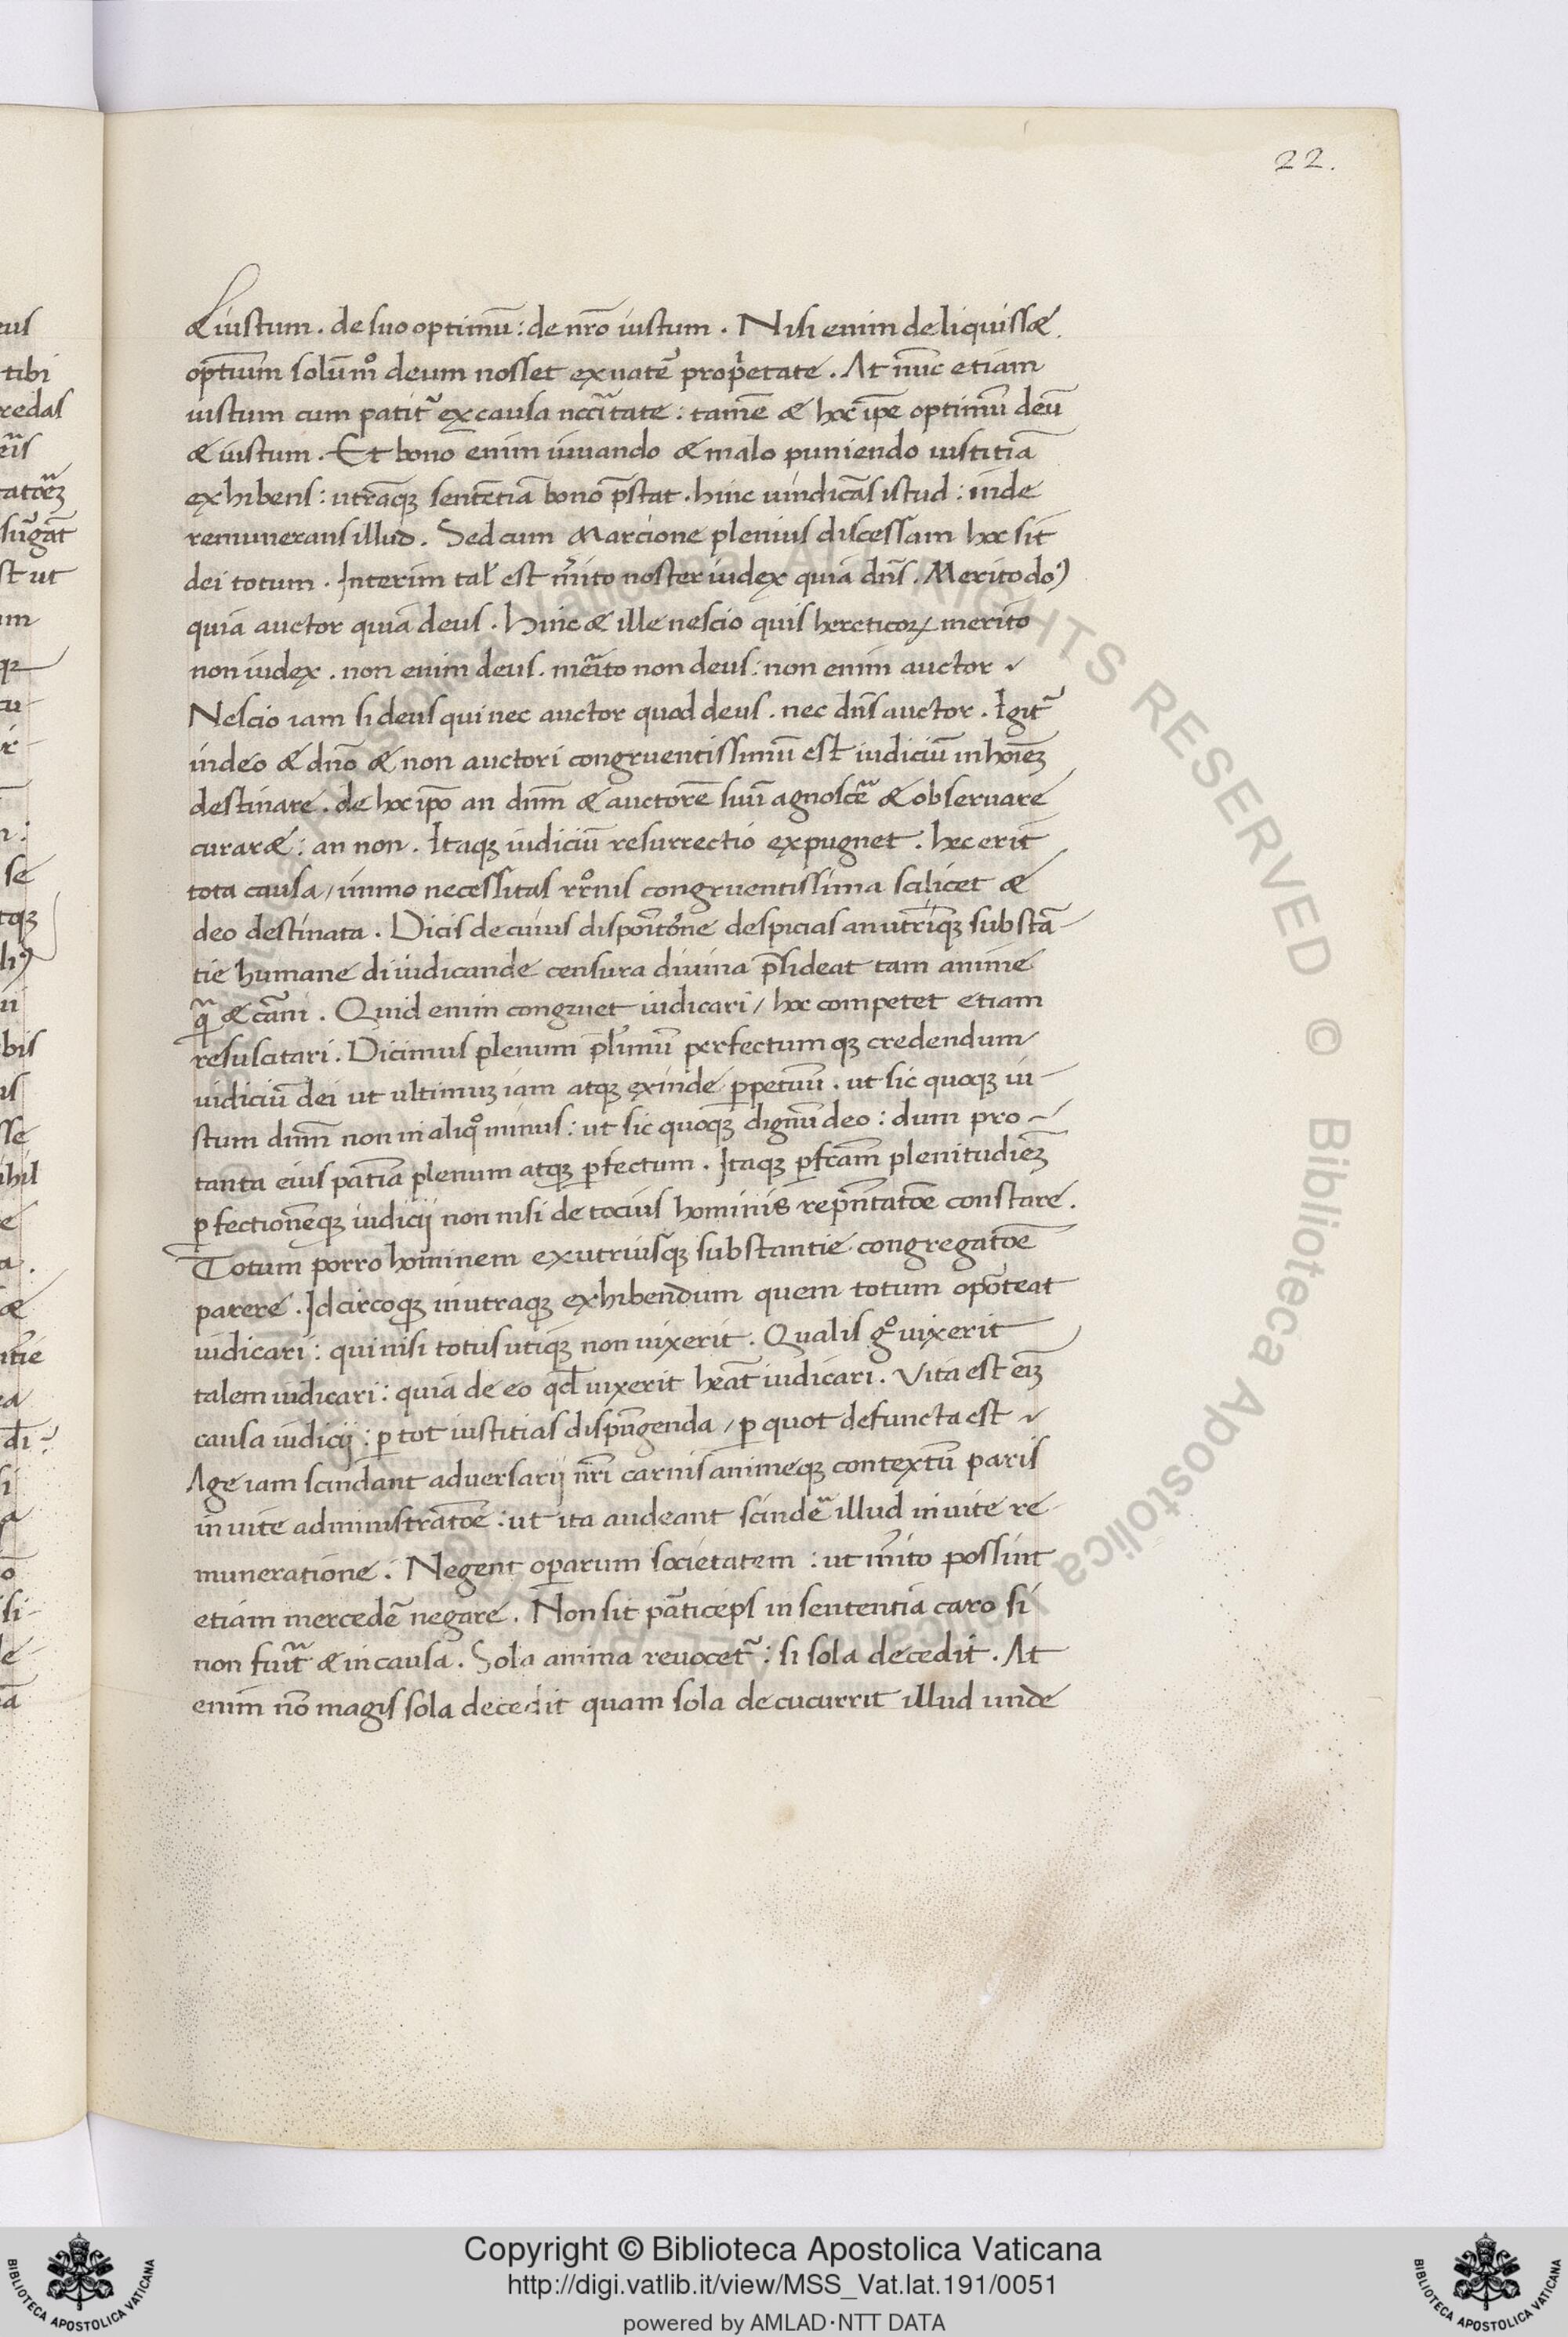 22.
& iustum . de suo optimū : de nr̄o iustum . Nisi enim deliquiss&.
optīum solūmº deum nosset ex natē propͥetate . At nūc etiam
iustum cum patitᷣ ex causa nccītate : tamē & hoc ip̄e optimū deū
& iustum . Et bono enim iuuando & malo puniendo iustitiā
exhibens : utrāqꝫ sentētiā bono p̄stat . hinc uindicās istud : inde
remunerans illud . Sed cum Marcione plenius discessam hoc sit
dei totum . Interim tal' est m̄ito noster iudex quia dn̄s . Merito do⁹
quia auctor quia deus . Hinc & ille nescio quis hereticoꝝ merito
non iudex . non enim deus . mēito non deus : non enim auctor
Nescio iam si deus qui nec auctor quod deus . nec dn̄s auctor . Igitᷣ
in deo & dn̄o & non auctori congruentissimū est iudiciū in hoīeꝫ
destinare . de hoc ip̄o an dnm̄ & auctorē suū agnoscē & obseruare
curar& : an non . Itaqꝫ iudiciū resurrectio expugnet . hec erit
tota causa / immo necessitas rr̄nis congruentissima scilicet &
deo destinata . Dicis de cuius dispoītōne despicias an utriqꝫ substā-
tie humane diiudicande censura diuina p̄sideat tam anime
qᷓ & carni . Quid enim congruet iudicari / hoc competet etiam
resuscitari . Dicimus plenum p̄limū perfectumqꝫ credendum
iudiciū dei ut ultimuꝫ iam atqꝫ exinde ꝑpetuū . ut sic quoqꝫ iu-
stum dum̄ non in aliqº minus : ut sic quoqꝫ dignū deo : dum pro-
tanta eius patīa plenum atqꝫ ꝑfectum . Itaqꝫ ꝑfcam̄ plenitudīeꝫ
ꝑfectionēqꝫ iudicij non nisi de tocius hominis repn̄tatōe constare .
Totum porro hominem ex utriusqꝫ substantie congregatōe
parere . Idcircoqꝫ in utraqꝫ exhibendum quem totum opōteat
iudicari : qui nisi totus utiqꝫ non uixerit . Qualis gº uixerit
talem iudicari : quia de eo qd̄ uixerit heāt iudicari . Vita est eīꝫ
causa iudicij : ꝑ tot iustitias dispūgenda / ꝑ quot defuncta est
Age iam scindant aduersarij nr̄i carnis animeqꝫ contextū paris
in uite administratōe : ut ita audeant scindē illud in uite re-
muneratione . Negent oꝑarum societatem : ut m̄ito possint
etiam mercedē negare . Non sit pāticeps in sententia caro si
non fuit̄ & in causa . Sola anima reuocetᷣ : si sola decedit . At
enim nō magis sola decedit quam sola decucurrit illud unde
eus
tibi
redas
st ut
se
tqꝫ
bis
ihil
Copyright © Biblioteca Apostolica Vaticana
http://digi.vatlib.it/view/MSS_Vat.lat.191/0051
powered by AMLAD·NTT DATA
BIBLIOTECA APOSTOLICA VATICANA
BIBLIOTECA APOSTOLICA VATICANA